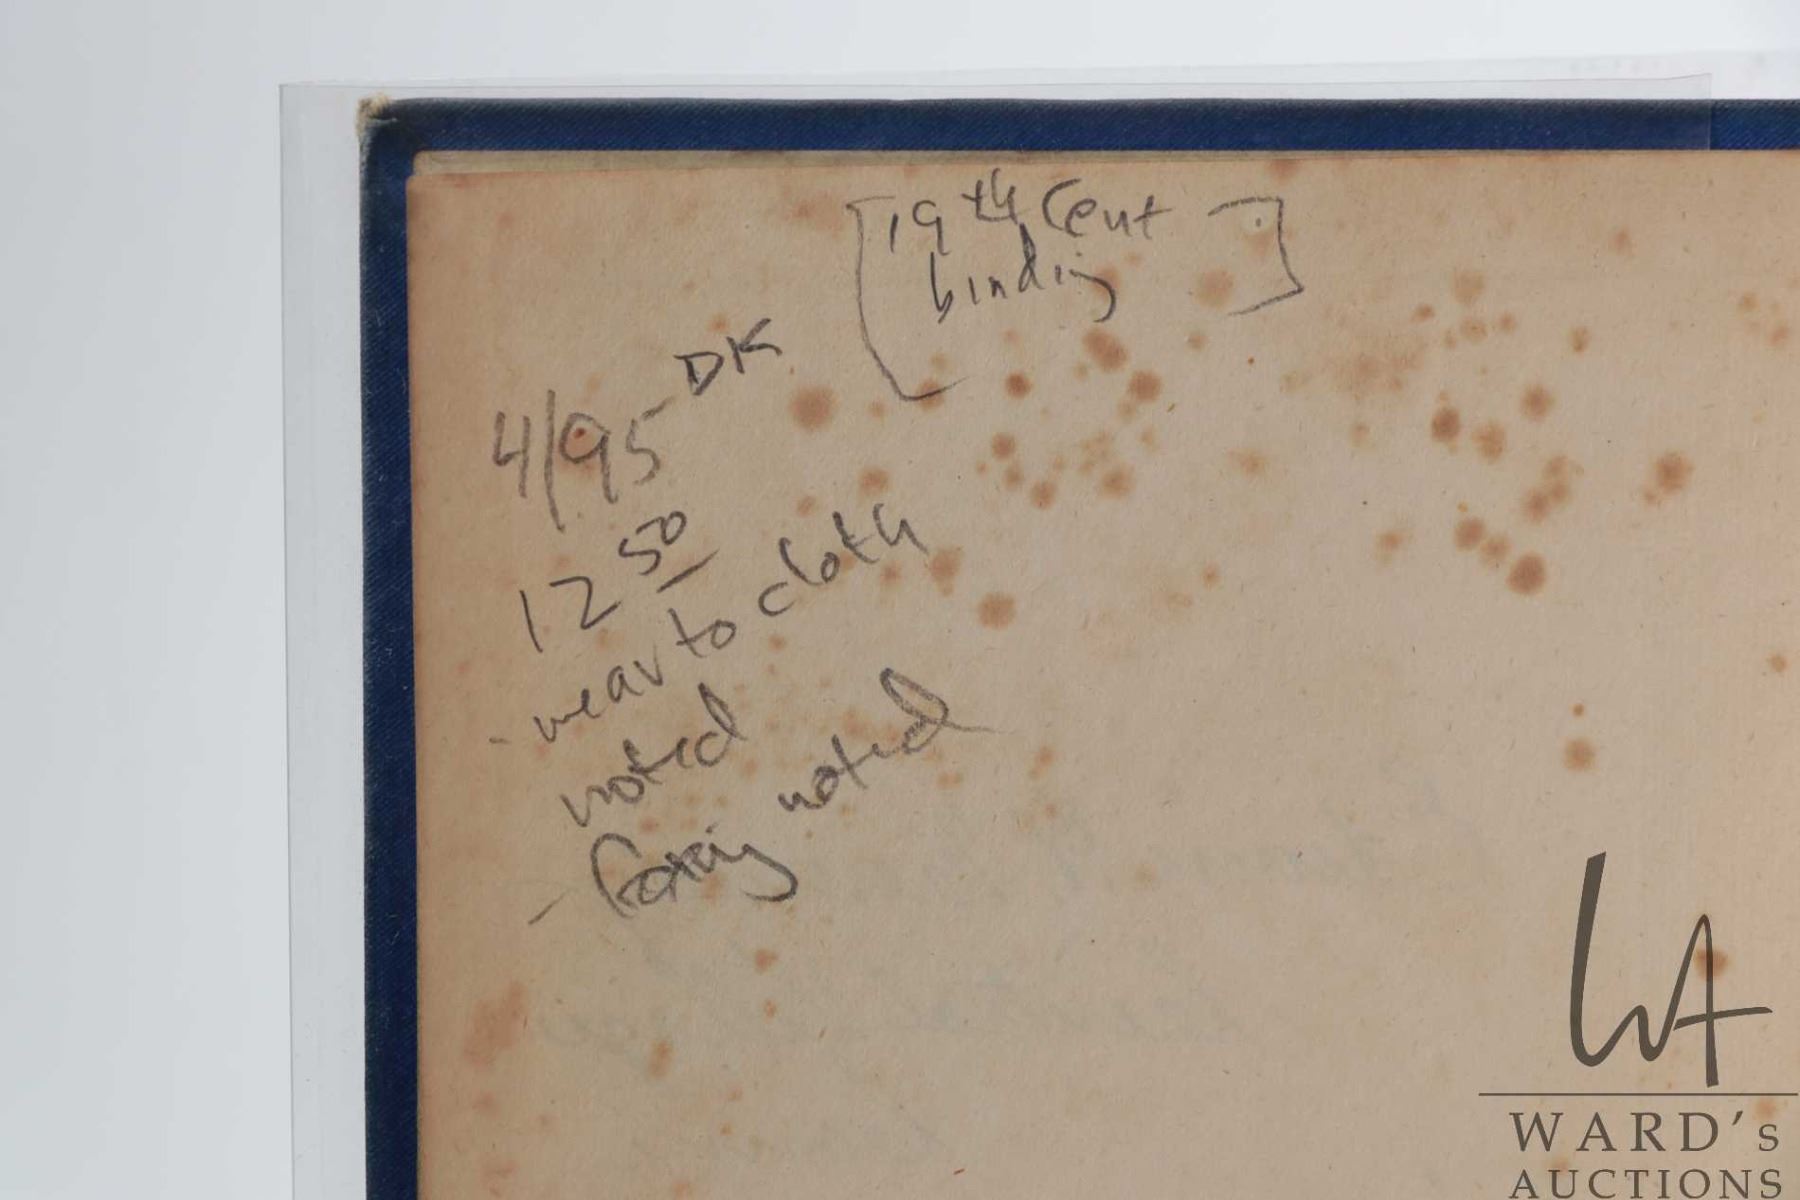 [19th Cent
binding]
4/95 DK
12 50
- wear to cloth
noted
- foxing noted
WA
WARD's
AUCTIONS